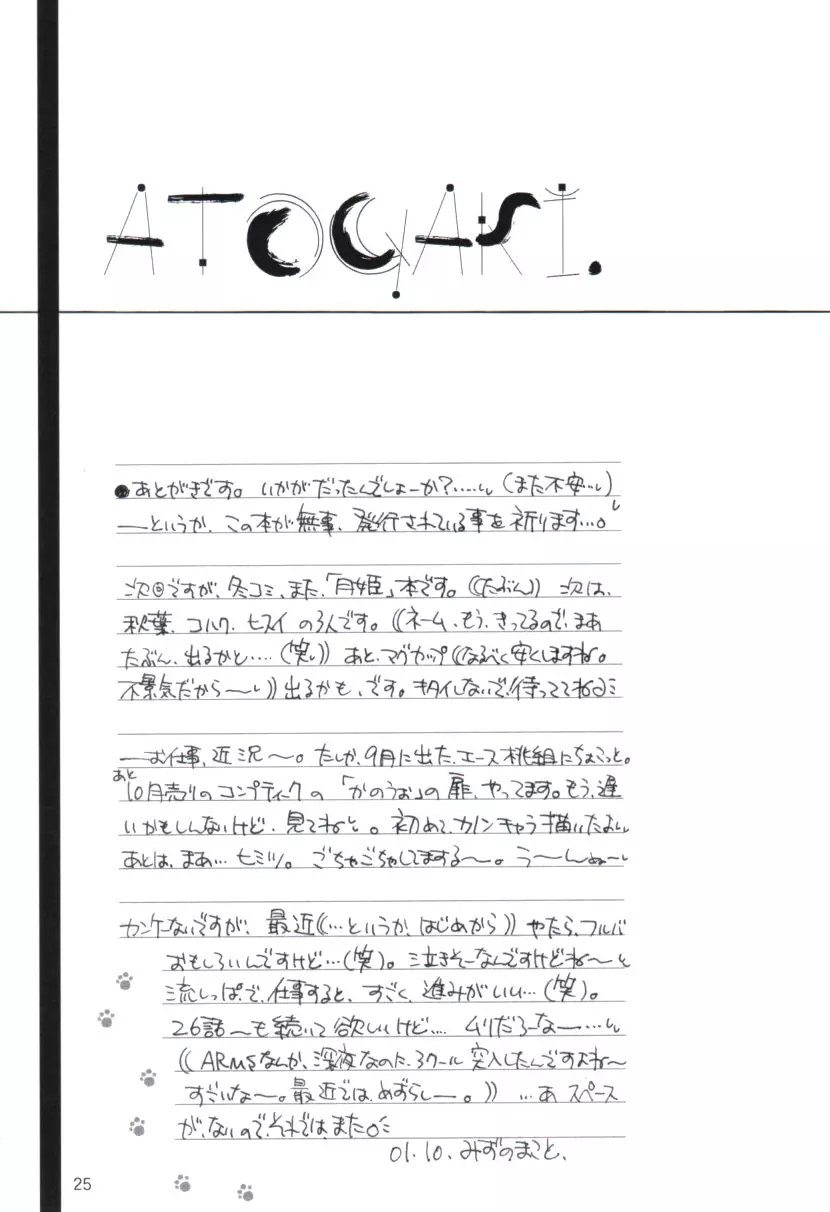 ATOGAKI.
●あとがきです。いかがだったんでしょーか?……(また不安…)
―というか、この本が無事、発行されている事を祈ります…。
次回ですが、冬コミ、また、「月姫」本です。((たぶん)) 次は、
秋葉、コハク、ヒスイ の3人です。((ネーム、もう、きってるので、まぁ
たぶん、出るかと‥‥(笑)) あと、マグカップ((なるべく安くしますね。
不景気だから〜)) 出るかも、です。キタイしないで、待っててね
―お仕事、近況〜。たしか、9月に出た、エース桃組にちょこっと。
あと
10月売りのコンプティークの「かのうぉ」の扉、やってます。もう、遅
いかもしんないけど、見てねと。初めて、カノンキャラ描いたよ
あとは、まぁ…ヒミツ。ごちゃごちゃしてまする〜。う―んぬ〜
カンケーないですが、最近((…というか、はじめから)) やたら、フルバ
おもしろいんですけど…(笑)。泣きそーなんですけどね〜と
流しっぱで、仕事すると、すごく、進みがいい…(笑)。
26話〜も続いて欲しいけど‥‥ ムリだろーなー…
((ARMSなんか、深夜なのに、3クール突入したんですよね〜
すごいな〜。最近では、めずらしー。)) …あ スペース
が、ないので、それでは、また。
01.10. みずのまこと、
25